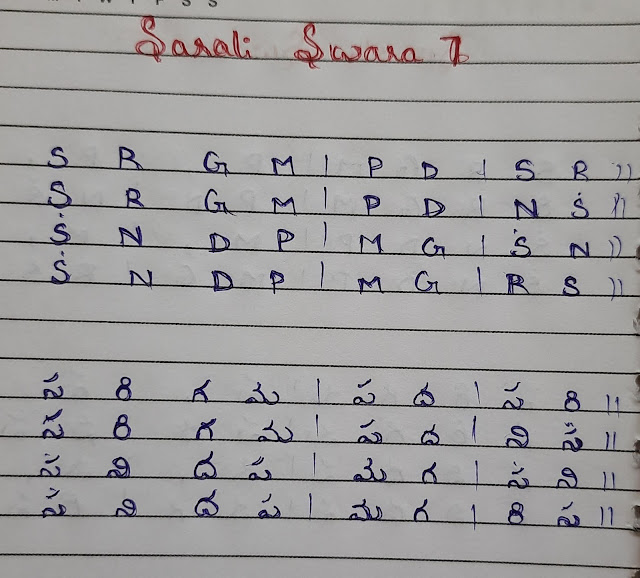 Sarali Swara 7
S R G M | P D | S R ||
S R G M | P D | N Ṡ ||
Ṡ N D P | M G | Ṡ N ||
Ṡ N D P | M G | R S ||
స రి గ మ | ప ద | స రి ||
స రి గ మ | ప ద | ని స ||
స ని ద ప | మ గ | స ని ||
స ని ద ప | మ గ | రి స ||